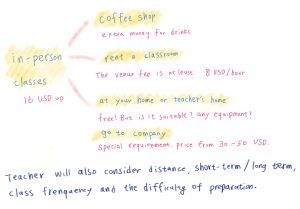 coffee shop
extra money for drinks
in-person
classes
16 USD up
rent a classroom
The venue fee is at least 8 USD/hour
at your home or teacher's home
free! But is it suitable? any equipment?
go to company
special requirement. price from 30-50 USD.
Teacher will also consider distance, short-term/long term,
class frenquency and the difficulty of preparation.